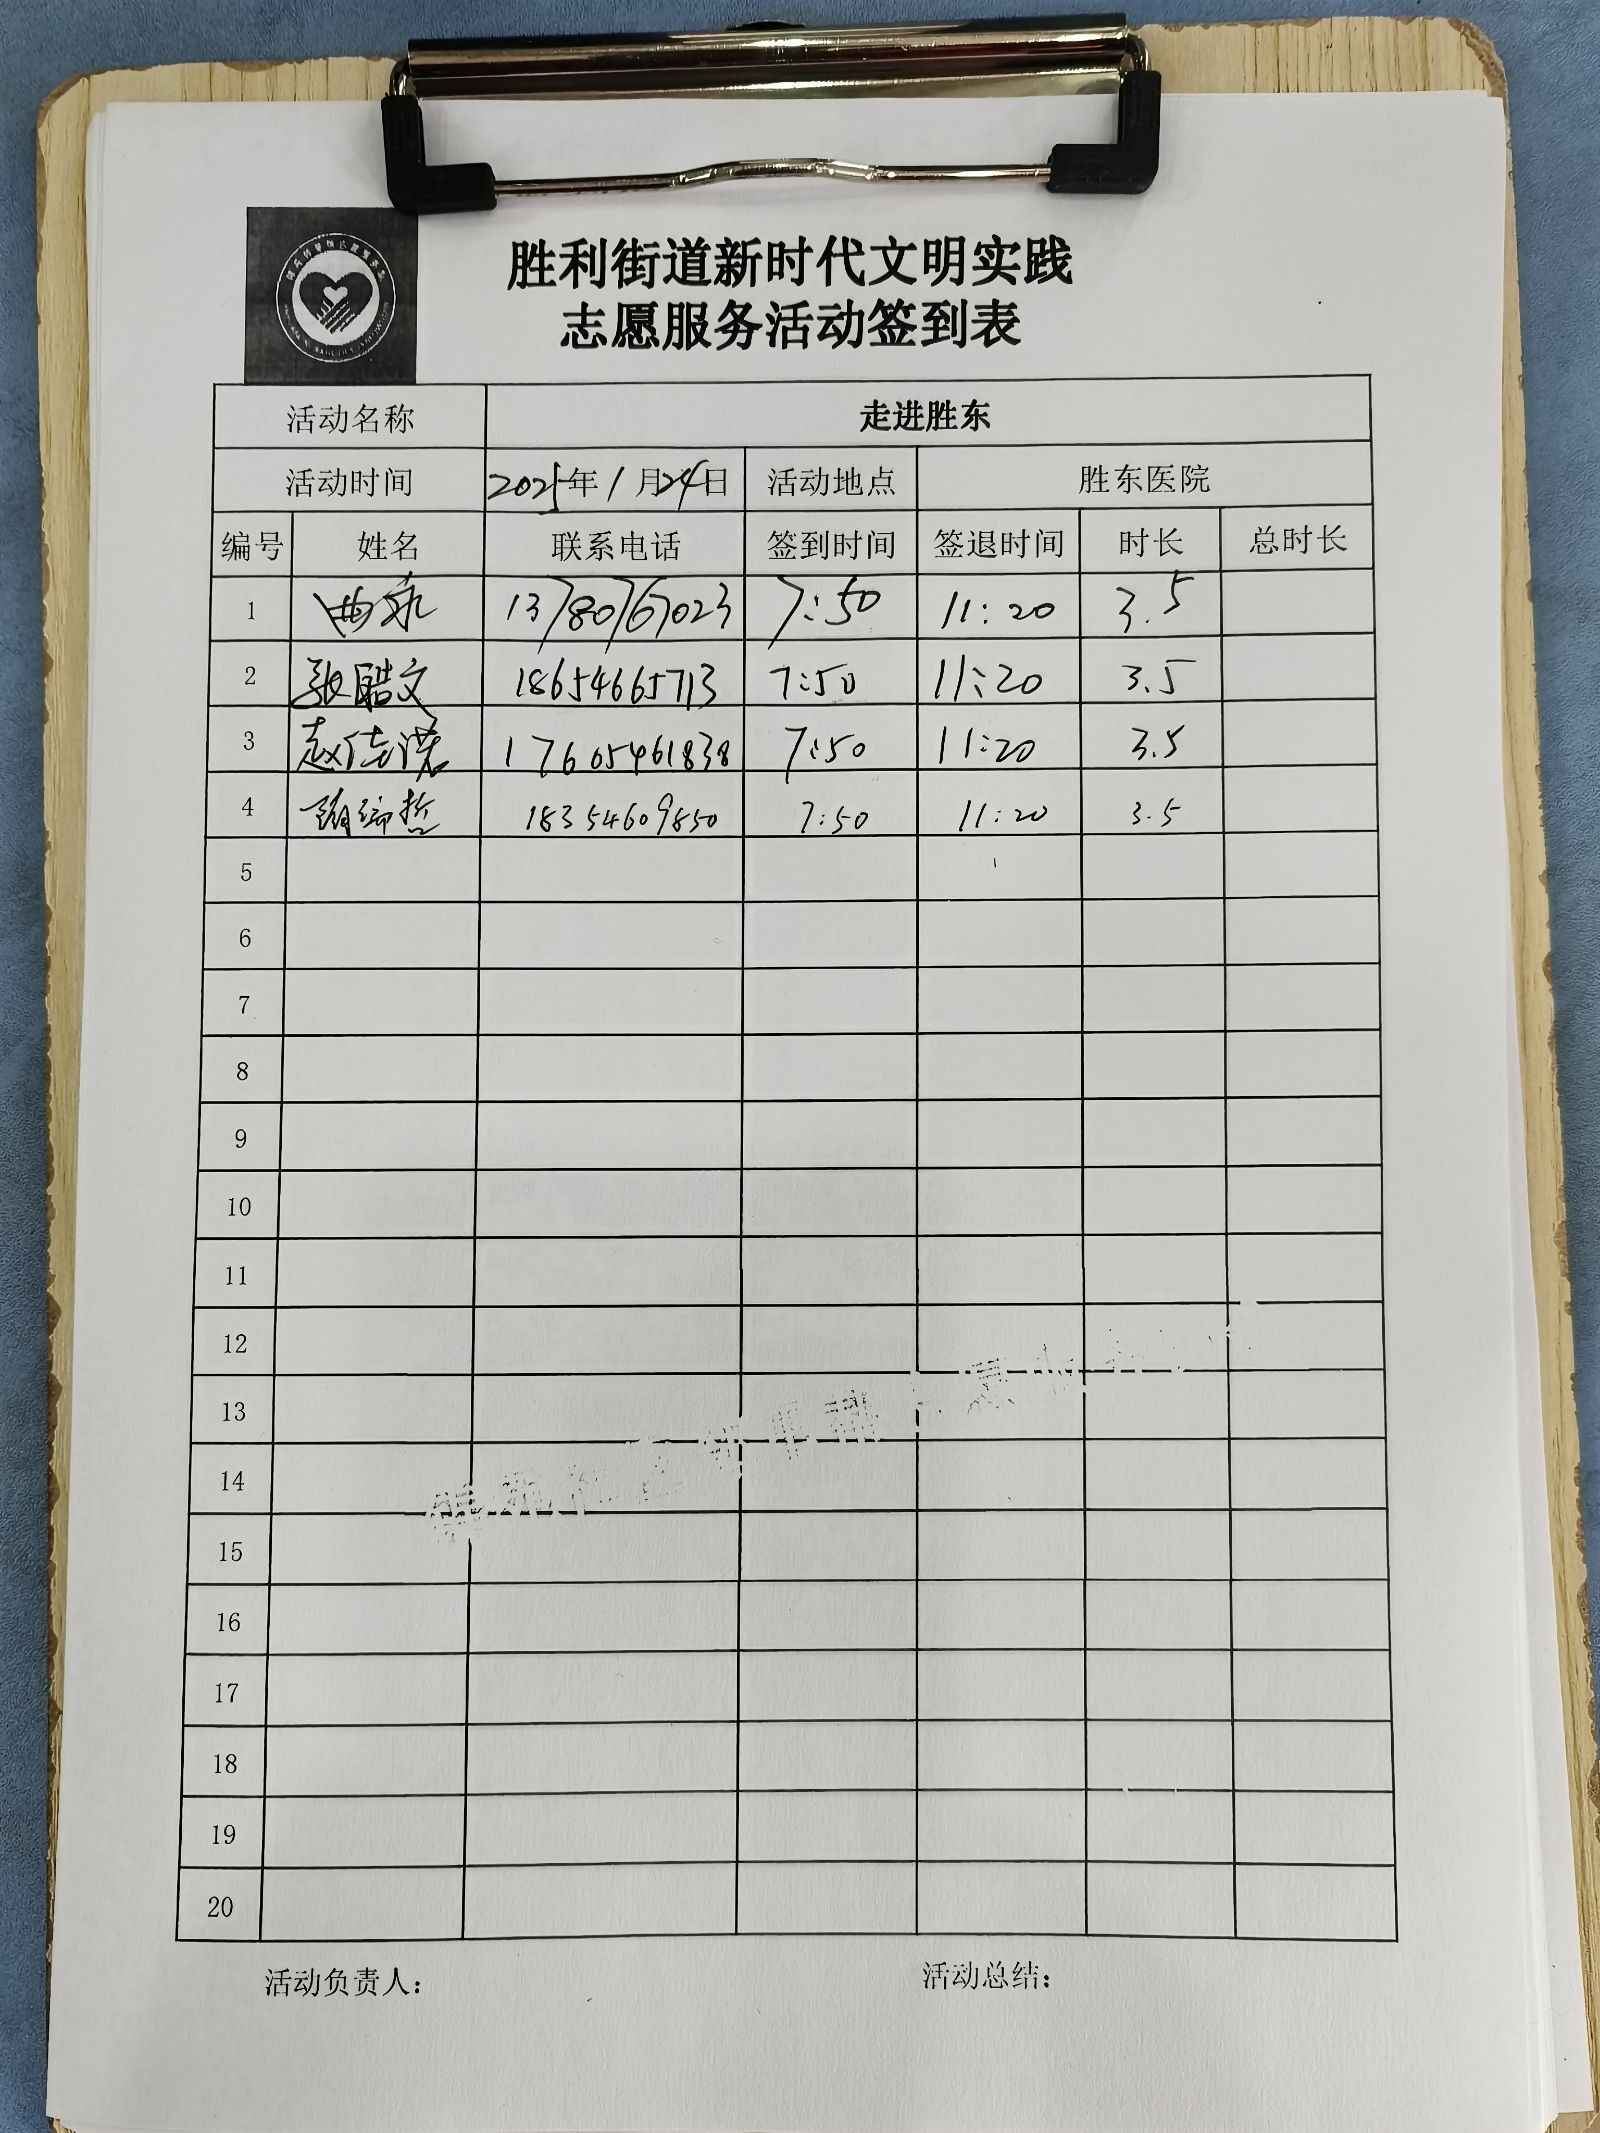 胜利街道新时代文明实践
志愿服务活动签到表
活动名称 走进胜东
活动时间 2025年1月24日 活动地点 胜东医院
编号 姓名 联系电话 签到时间 签退时间 时长 总时长
1 曲永 13780767023 7:50 11:20 3.5
2 张皓文 18654665713 7:50 11:20 3.5
3 赵佳诺 17605461838 7:50 11:20 3.5
4 瑞哲 18354609850 7:50 11:20 3.5
5
6
7
8
9
10
11
12
13
14
15
16
17
18
19
20
活动负责人: 活动总结: